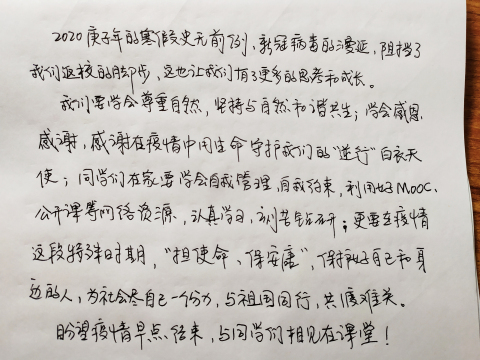 2020庚子年的寒假史无前例，新冠病毒的漫延，阻挡了
我们返校的脚步，这也让我们有了更多的思考和成长。
我们要学会尊重自然，坚持与自然和谐共生；学会感恩，
感谢，感谢在疫情中用生命守护我们的“逆行”白衣天
使；同学们在家要学会自我管理，自我约束，利用好MOOC、
公开课等网络资源，认真学习，刻苦钻研；更要在疫情
这段特殊时期，“担使命、保安康”，保护好自己和身
边的人，为社会尽自己一个份力，与祖国同行，共度难关。
盼望疫情早点结束，与同学们相见在课堂！